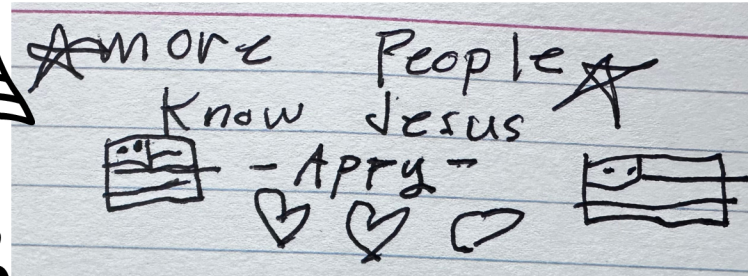 more People
Know Jesus
- Apry -